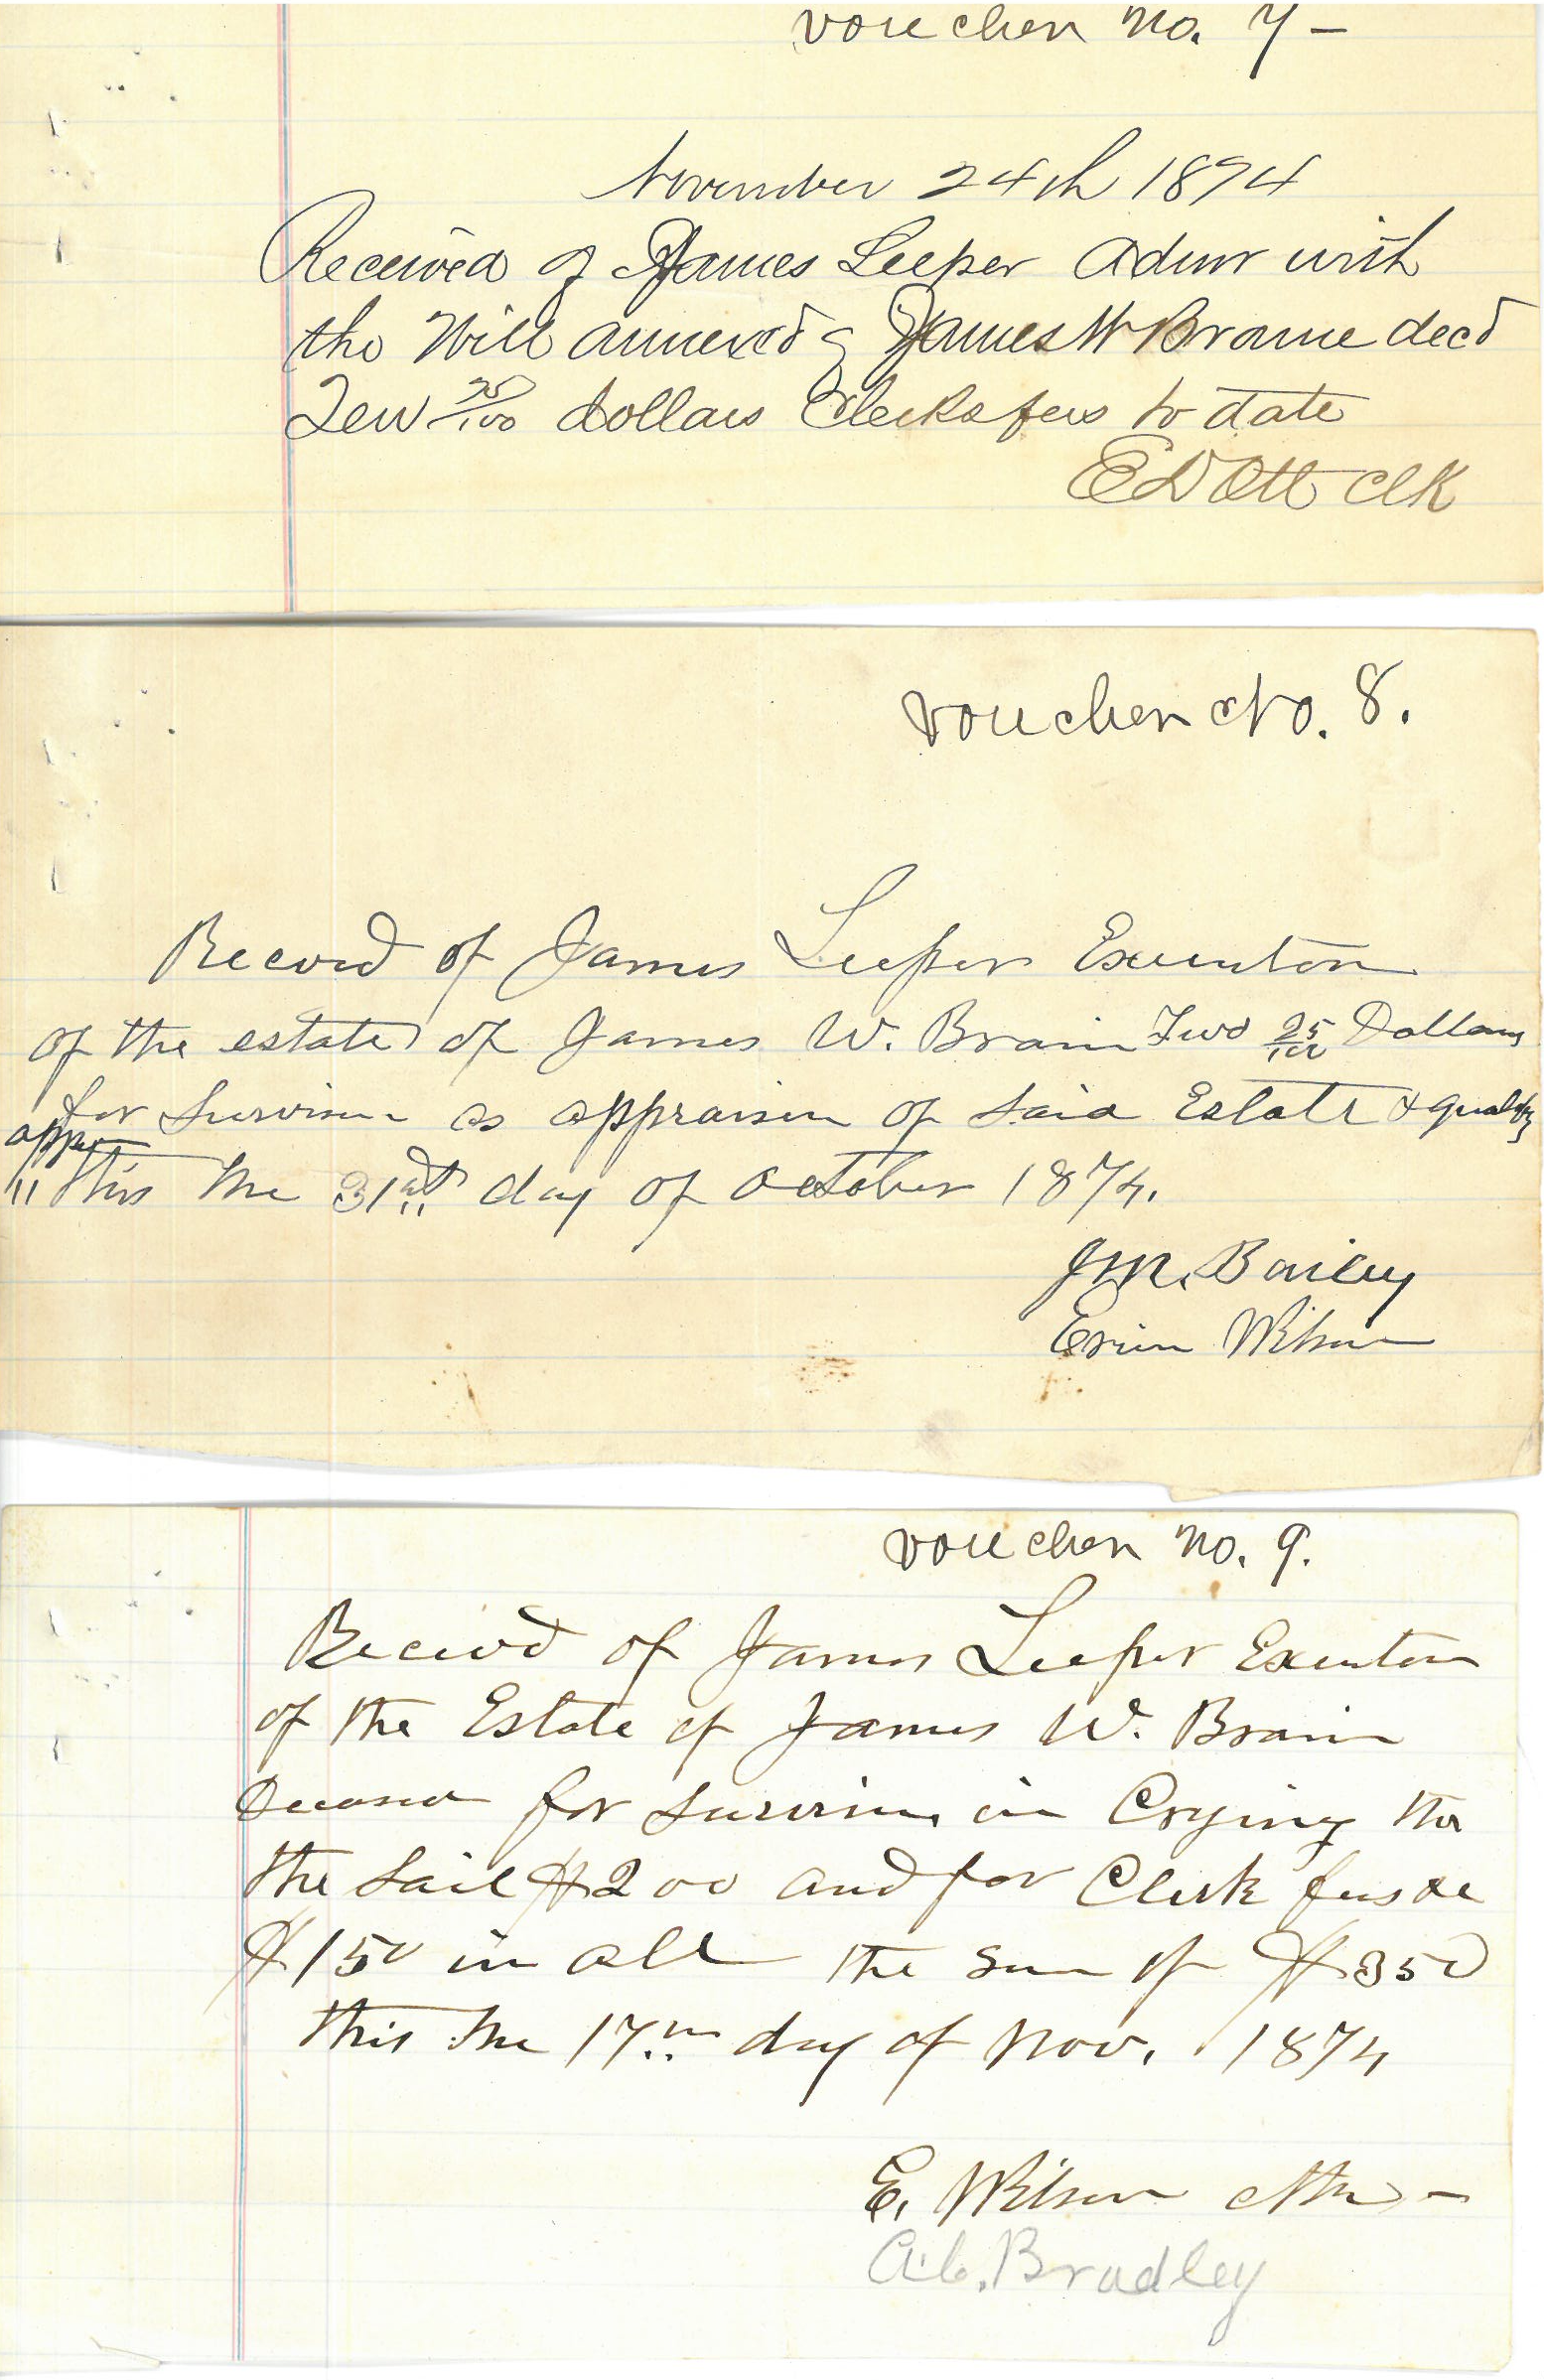 voucher no. 7 –
November 24th 1874
Received of James Leeper Admr with
the Will annexed of James W Brame decd
Ten 25/100 dollars Clerks fees to date
E D Ott Clk
voucher No. 8.
Recevd of James Leeper Executor
of the estate of James W. Brain Two 25/100 Dollars
for Survices as appraiser of Said Estate &
this the 31st day of October 1874.
J.M. Bailey
Wilson
voucher no. 9.
Receivd of James Leeper Executor
of the Estate of James W. Brain
Deceased for Survices in Crying the
the Sail $200 and for Clerk fees
$150 in all the sum of $350
this the 17th day of Nov. 1874
E. Wilson
A.C. Bradley